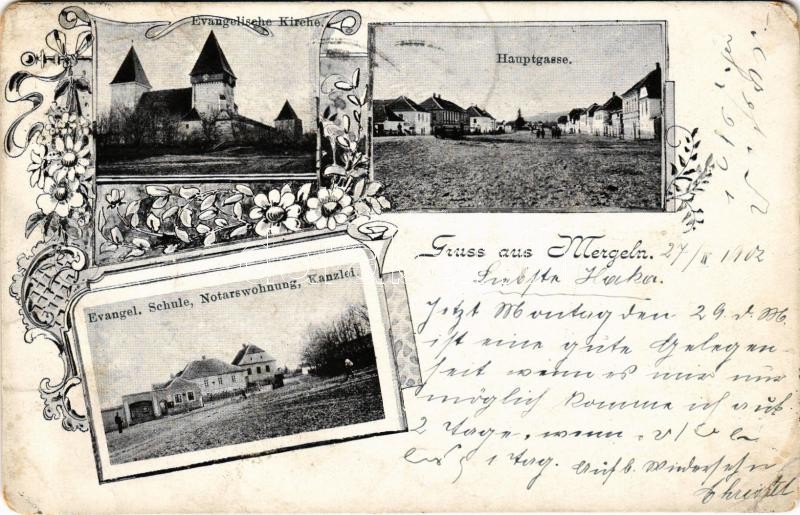 Evangelische Kirche.
Hauptgasse.
Gruss aus Mergeln. 27/ 1902
Evangel. Schule, Notarswohnung, Kanzlei.
Liebste
Jetzt Montag den 29. d. M.
ist eine gute Gelegen
heit wenn es mir nur
möglich komme ich auf
2 Tage, wenn
1 Tag. Auf b. Wiedersehn